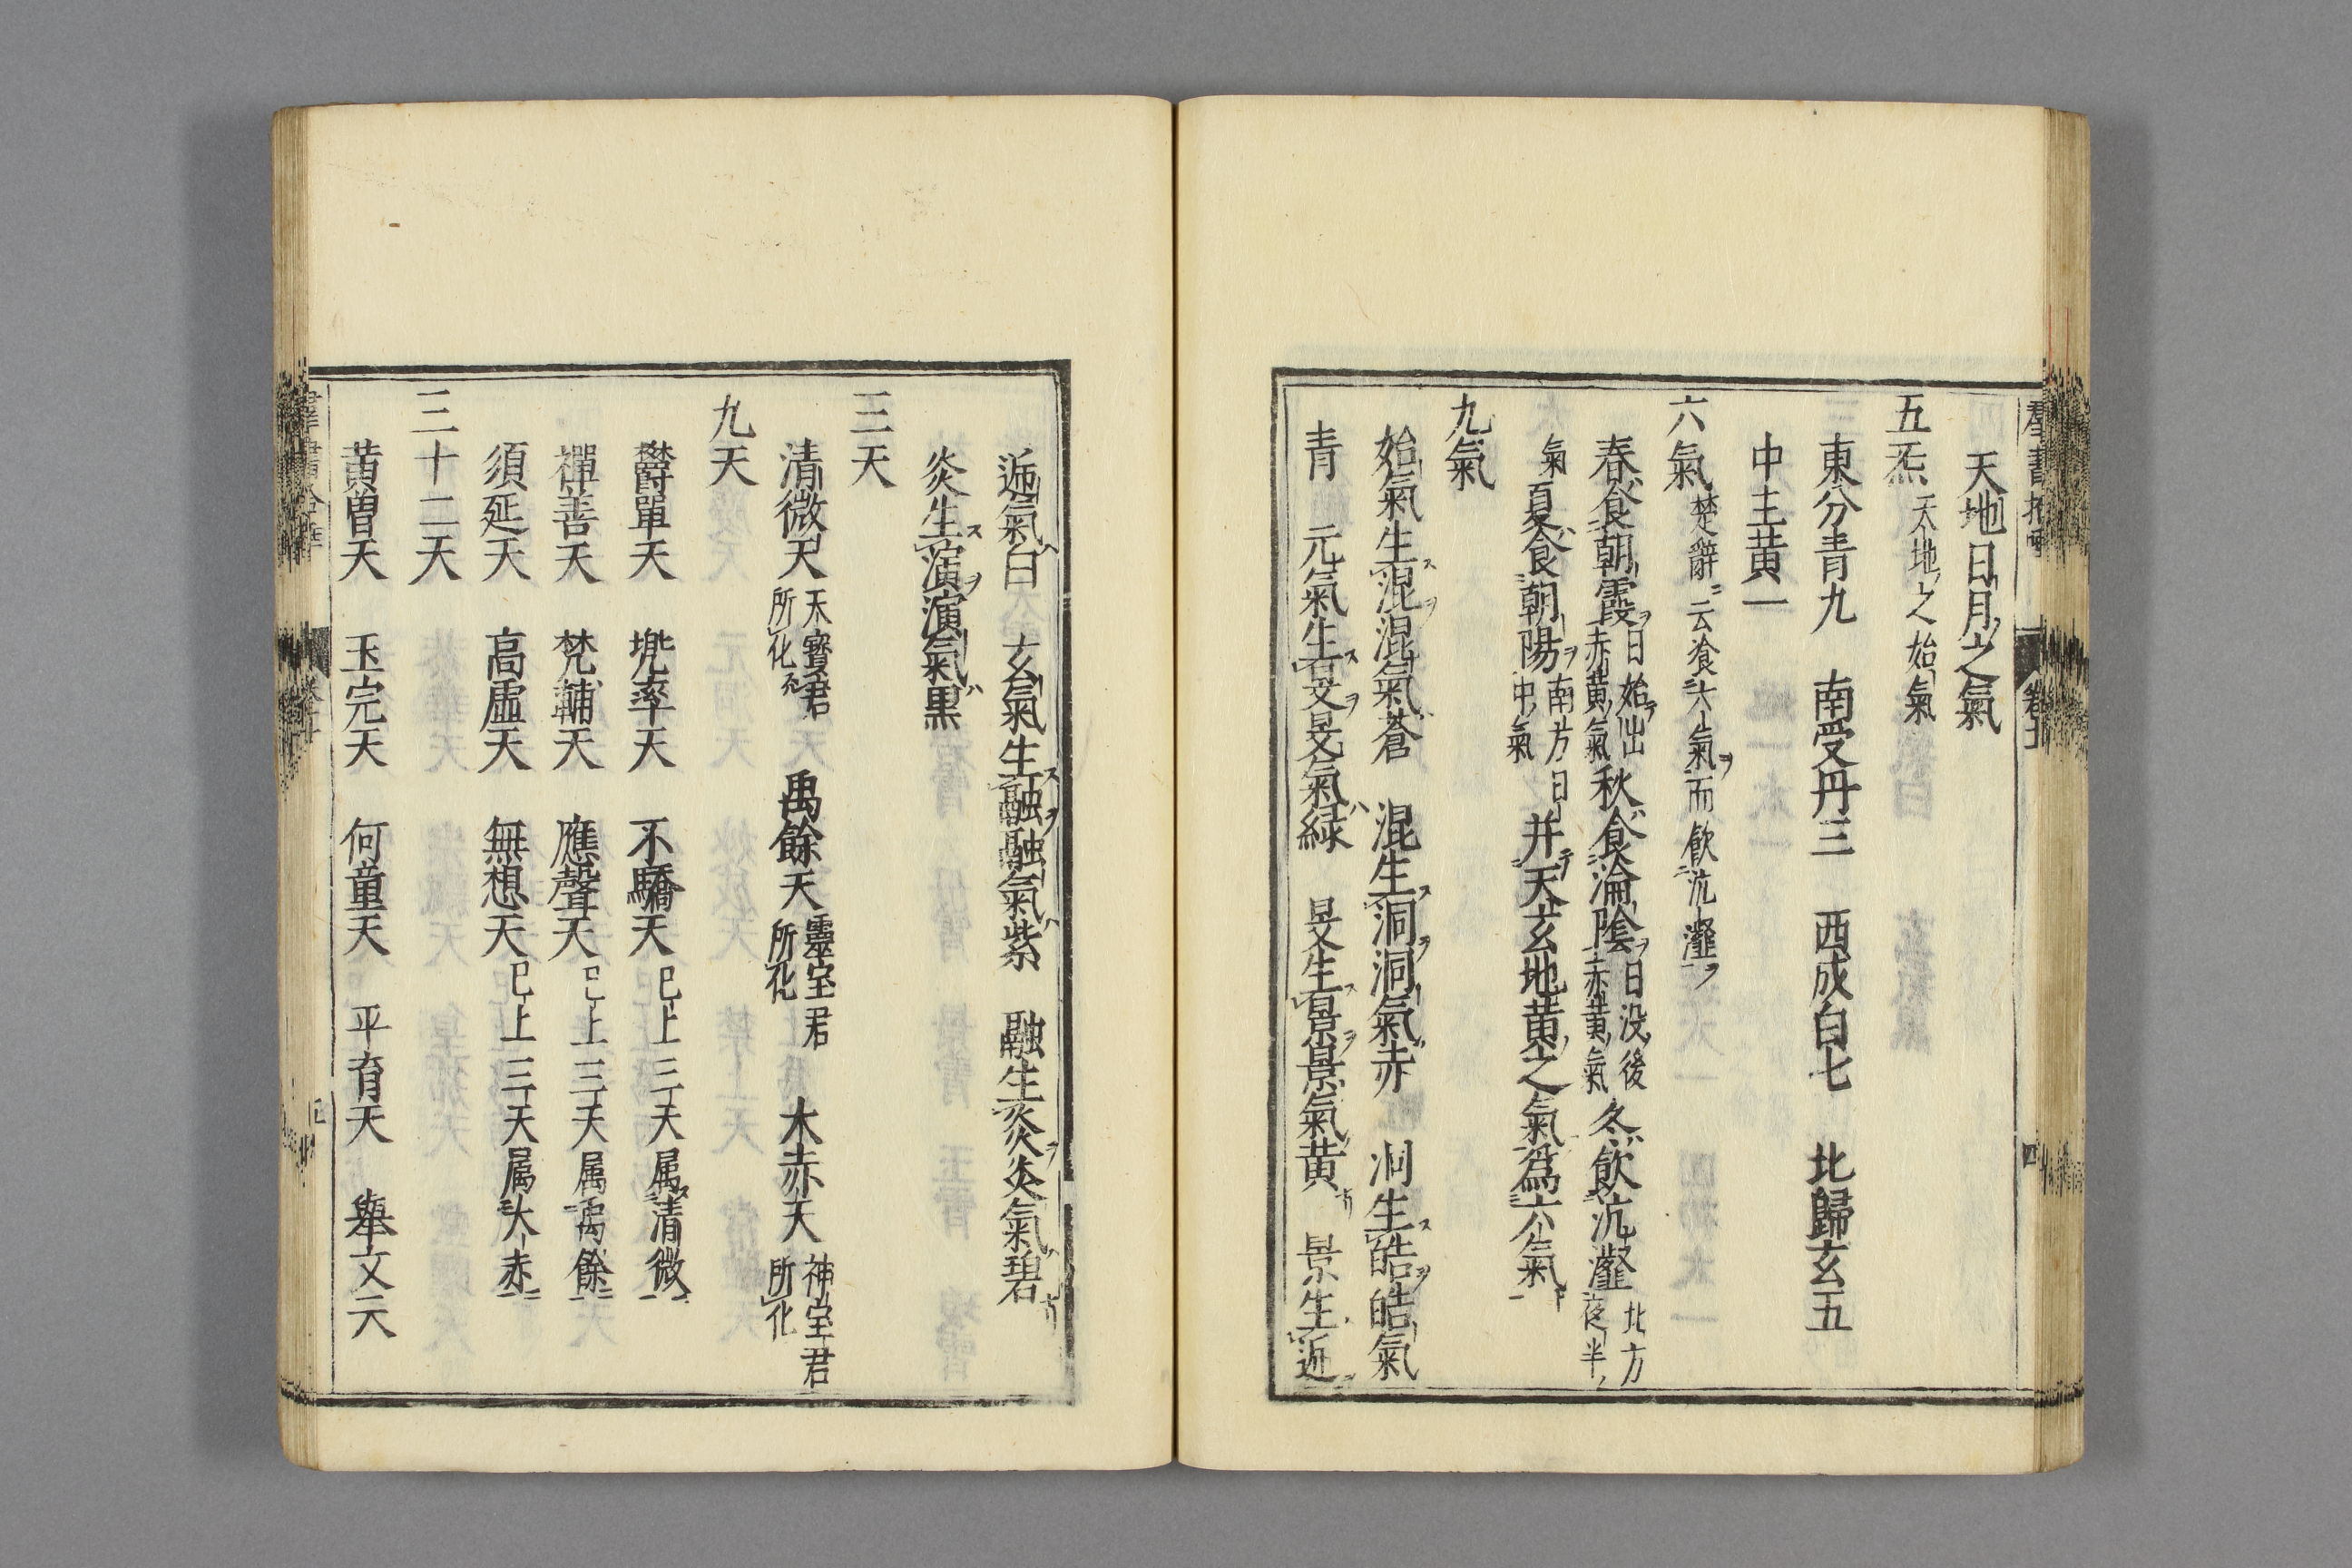 天地日月之氣
五炁 天地之始氣
東分青九 南受丹三 西成白七 北歸玄五
中主黄一
六氣 楚辭云飡六氣而飲沆瀣
春食朝霞 日始出赤黄氣 秋食淪陰 日没後赤黄氣 冬飲沆瀣 北方夜半
氣 夏食朝陽 南方日中氣 并天玄地黄之氣爲六氣
九氣
始氣生混混氣蒼 混生洞洞氣赤 洞生皓皓氣
青 元氣生旻旻氣緑 旻生景景氣黄 景生遁
遁氣白 玄氣生融融氣紫 融生炎炎氣碧
炎生演演氣黒
三天
清微天 天寳君所化 禹餘天 靈宝君所化 大赤天 神宝君所化
九天
欝單天 兠率天 不驕天 已上三天属清微
禪善天 梵輔天 應聲天 已上三天属禹餘
須延天 高虛天 無想天 已上三天属大赤
三十二天
黄曽天 玉完天 何童天 平育天 舉文天